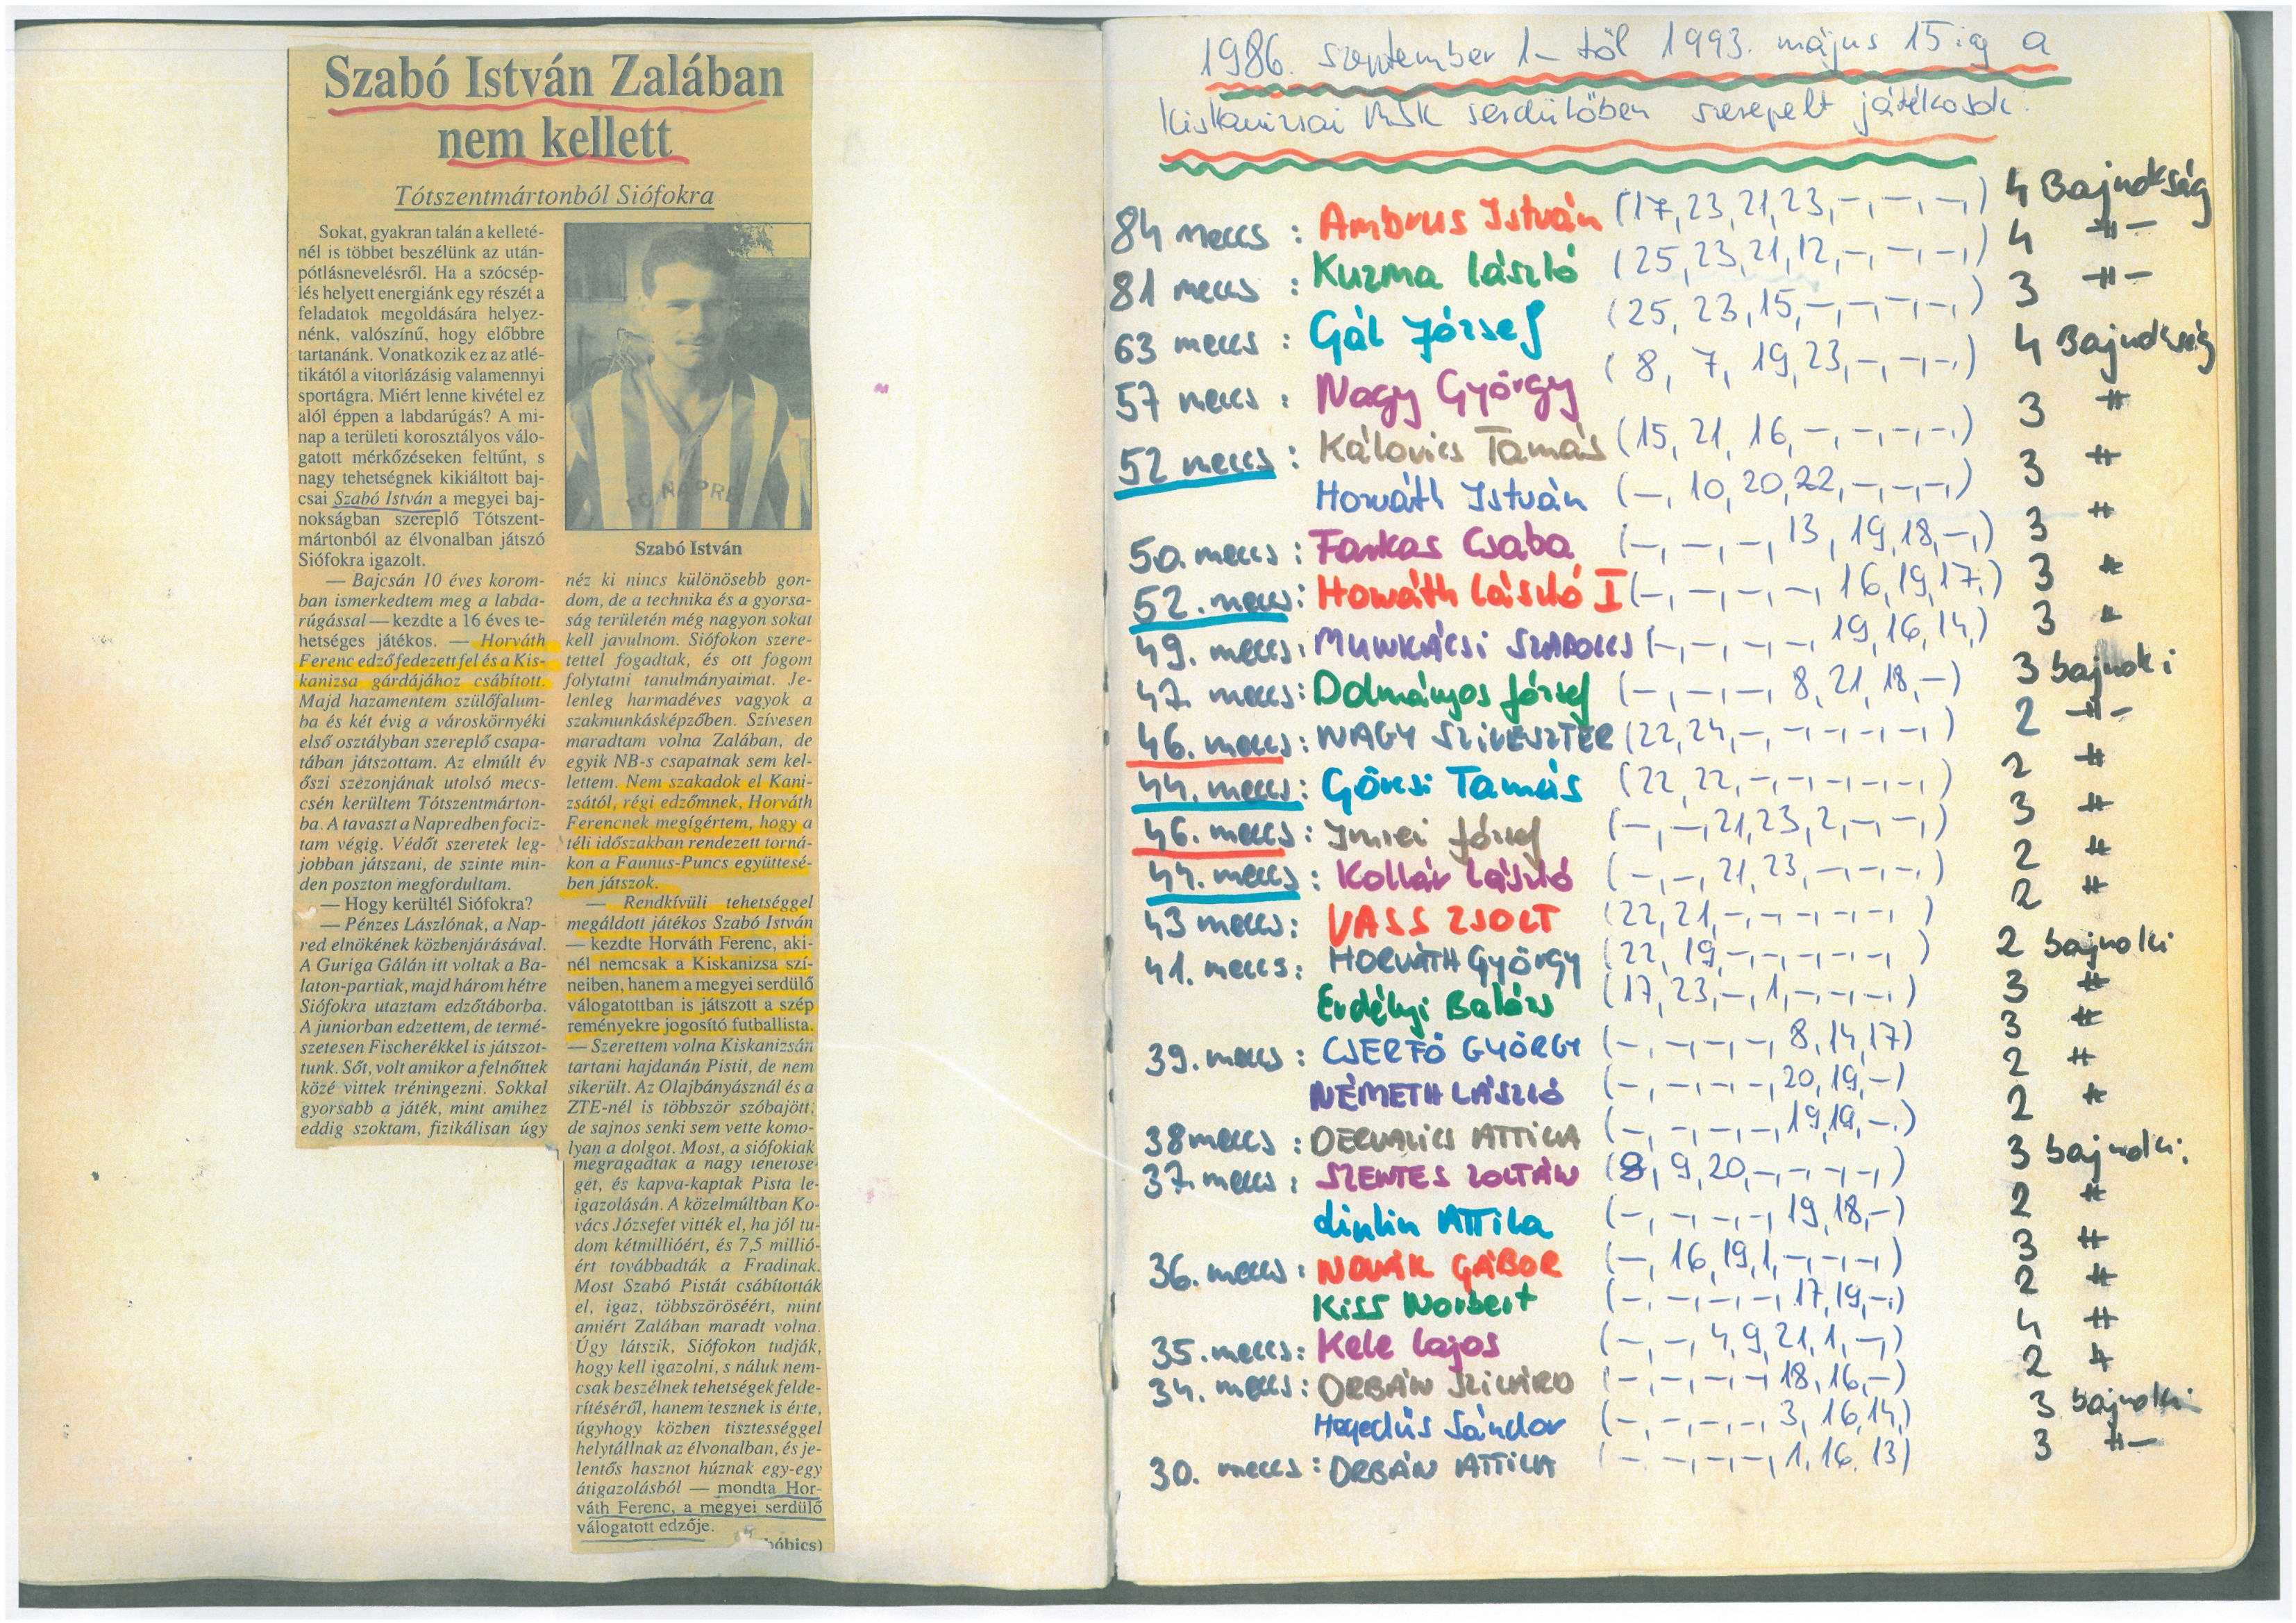 Szabó István Zalában
nem kellett
Tótszentmártonból Siófokra
Sokat, gyakran talán a kelleté-
nél is többet beszélünk azután-
pótlásnevelésről. Ha a szócsép-
lés helyett energiánk egy részét a
feladatok megoldására helyez-
nénk, valószínű, hogy előbbre
tartanánk. Vonatkozik ez az atlé-
tikától a vitorlázásig valamennyi
sportágra. Miért lenne kivétel ez
alól éppen a labdarúgás? A mi-
nap a területi korosztályos válo-
gatott mérkőzéseken feltűnt, s
nagy tehetségnek kikiáltott baj-
csai Szabó István a megyei baj-
nokságban szereplő Tótszent-
mártonból az élvonalban játszó
Siófokra igazolt.
— Bajcsán 10 éves korom-
ban ismerkedtem meg a labda-
rúgással — kezdte a 16 éves te-
hetséges játékos. — Horváth
Ferenc edző fedezett fel és a Kis-
kanizsa gárdájához csábított.
Majd hazamentem szülőfalum-
ba és két évig a városkörnyéki
első osztályban szereplő csapa-
tában játszottam. Az elmúlt év
őszi szezonjának utolsó mecs-
csén kerültem Tótszentmárton-
ba. A tavaszt a Napredben fociz-
tam végig. Védőt szeretek leg-
jobban játszani, de szinte min-
den poszton megfordultam.
— Hogy kerültél Siófokra?
— Pénzes Lászlónak, a Nap-
red elnökének közbenjárásával.
A Guriga Gálán itt voltak a Ba-
laton-partiak, majd három hétre
Siófokra utaztam edzőtáborba.
A juniorban edzettem, de termé-
szetesen Fischerékkel is játszot-
tunk. Sőt, volt amikor a felnőttek
közé vittek tréningezni. Sokkal
gyorsabb a játék, mint amihez
eddig szoktam, fizikálisan úgy
Szabó István
néz ki nincs különösebb gon-
dom, de a technika és a gyorsa-
ság területén még nagyon sokat
kell javulnom. Siófokon szere-
tettel fogadtak, és ott fogom
folytatni tanulmányaimat. Je-
lenleg harmadéves vagyok a
szakmunkásképzőben. Szívesen
maradtam volna Zalában, de
egyik NB-s csapatnak sem kel-
lettem. Nem szakadok el Kani-
zsától, régi edzőmnek, Horváth
Ferencnek megígértem, hogy a
téli időszakban rendezett torná-
kon a Faunus-Puncs együttesé-
ben játszok.
— Rendkívüli tehetséggel
megáldott játékos Szabó István
— kezdte Horváth Ferenc, aki-
nél nemcsak a Kiskanizsa szí-
neiben, hanem a megyei serdülő
válogatottban is játszott a szép
reményekre jogosító futballista.
— Szerettem volna Kiskanizsán
tartani hajdanán Pistit, de nem
sikerült. Az Olajbányásznál és a
ZTE-nél is többször szóbajött,
de sajnos senki sem vette komo-
lyan a dolgot. Most, a siófokiak
megragadták a nagy lehetősé-
get, és kapva-kaptak Pista le-
igazolásán. A közelmúltban Ko-
vács Józsefet vitték el, ha jól tu-
dom kétmillióért, és 7,5 millió-
ért továbbadták a Fradinak.
Most Szabó Pistát csábították
el, igaz, többszöröséért, mint
amiért Zalában maradt volna.
Úgy látszik, Siófokon tudják,
hogy kell igazolni, s náluk nem-
csak beszélnek tehetségek felde-
rítéséről, hanem tesznek is érte,
úgyhogy közben tisztességgel
helytállnak az élvonalban, és je-
lentős hasznot húznak egy-egy
átigazolásból — mondta Hor-
váth Ferenc, a megyei serdülő
válogatott edzője.
bóbics)
1986. szeptember 1-től 1993. május 15-ig a
Kiskanizsai MSK serdülőben szerepelt játékosok.
84 meccs : Ambrus István (17,23,21,23,-,-,-,-,) 4 Bajnokság
81 meccs : Kuzma László (25,23,21,12,-,-,-,-,) 4 -||-
63 meccs : Gál József (25,23,15,-,-,-,-,-,) 3 -||-
57 meccs : Nagy György (8, 7, 19,23,-,-,-.) 4 Bajnokság
52 meccs : Kálovics Tamás (15, 21, 16,-,-,-,-.) 3 -||-
Horváth István (-, 10,20,22,-,-,-,) 3 -||-
50. meccs : Farkas Csaba (-,-,-, 13, 19,18,-,) 3 -||-
52. meccs : Horváth László I (-,-,-,-, 16,19,17,) 3 -||-
49. meccs : MUNKÁCSI SZABOLCS (-,-,-,-, 19,16,14,) 3 -||-
47. meccs : Dolmányos József (-,-,-,-, 8,21,18,-) 3 bajnoki
46. meccs : NAGY SZILVESZTER (22,24,-,-,-,-,-,) 2 -||-
44. meccs : Göcsi Tamás (22,22,-,-,-,-,-,) 2 -||-
46. meccs : Imrei József (-,-,21,23,2,-,-,) 3 -||-
44. meccs : Kollár László (-,-,21,23,-,-,-.) 2 -||-
43 meccs : VASS ZSOLT (22,21,-,-,-,-,-, ) 2 -||-
41. meccs : HORVÁTH György (22,19,-,-,-,-,-, ) 2 bajnoki
Erdélyi Balázs (17,23,-,1,-,-,-.) 3 -||-
39. meccs : CSERFŐ GYÖRGY (-,-,-,-, 8,14,17) 3 -||-
NÉMETH LÁSZLÓ (-,-,-,-,20,19,-) 2 -||-
38 meccs : DERVALICS ATTILA (-,-,-,-,19,19,-.) 2 -||-
37. meccs : SZENTES ZOLTÁN (8, 9,20,-,-,-,-,) 3 bajnoki
Linlin ATTILA (-,-,-,-,19,18,-) 2 -||-
36. meccs : NOVÁK GÁBOR (-, 16,19,1,-,-,-,) 3 -||-
Kiss Norbert (-,-,-,-,17,19,-.) 2 -||-
35. meccs : Kele Lajos (-,-, 4,9,21,1,-,) 4 -||-
34. meccs : ORBÁN SZILÁRD (-,-,-,-,18,16,-) 2 -||-
Hegedüs Sándor (-,-,-,-, 3,16,14,) 3 bajnoki
30. meccs : ORBÁN ATTILA (-,-,-,-,1,16,13) 3 -||-